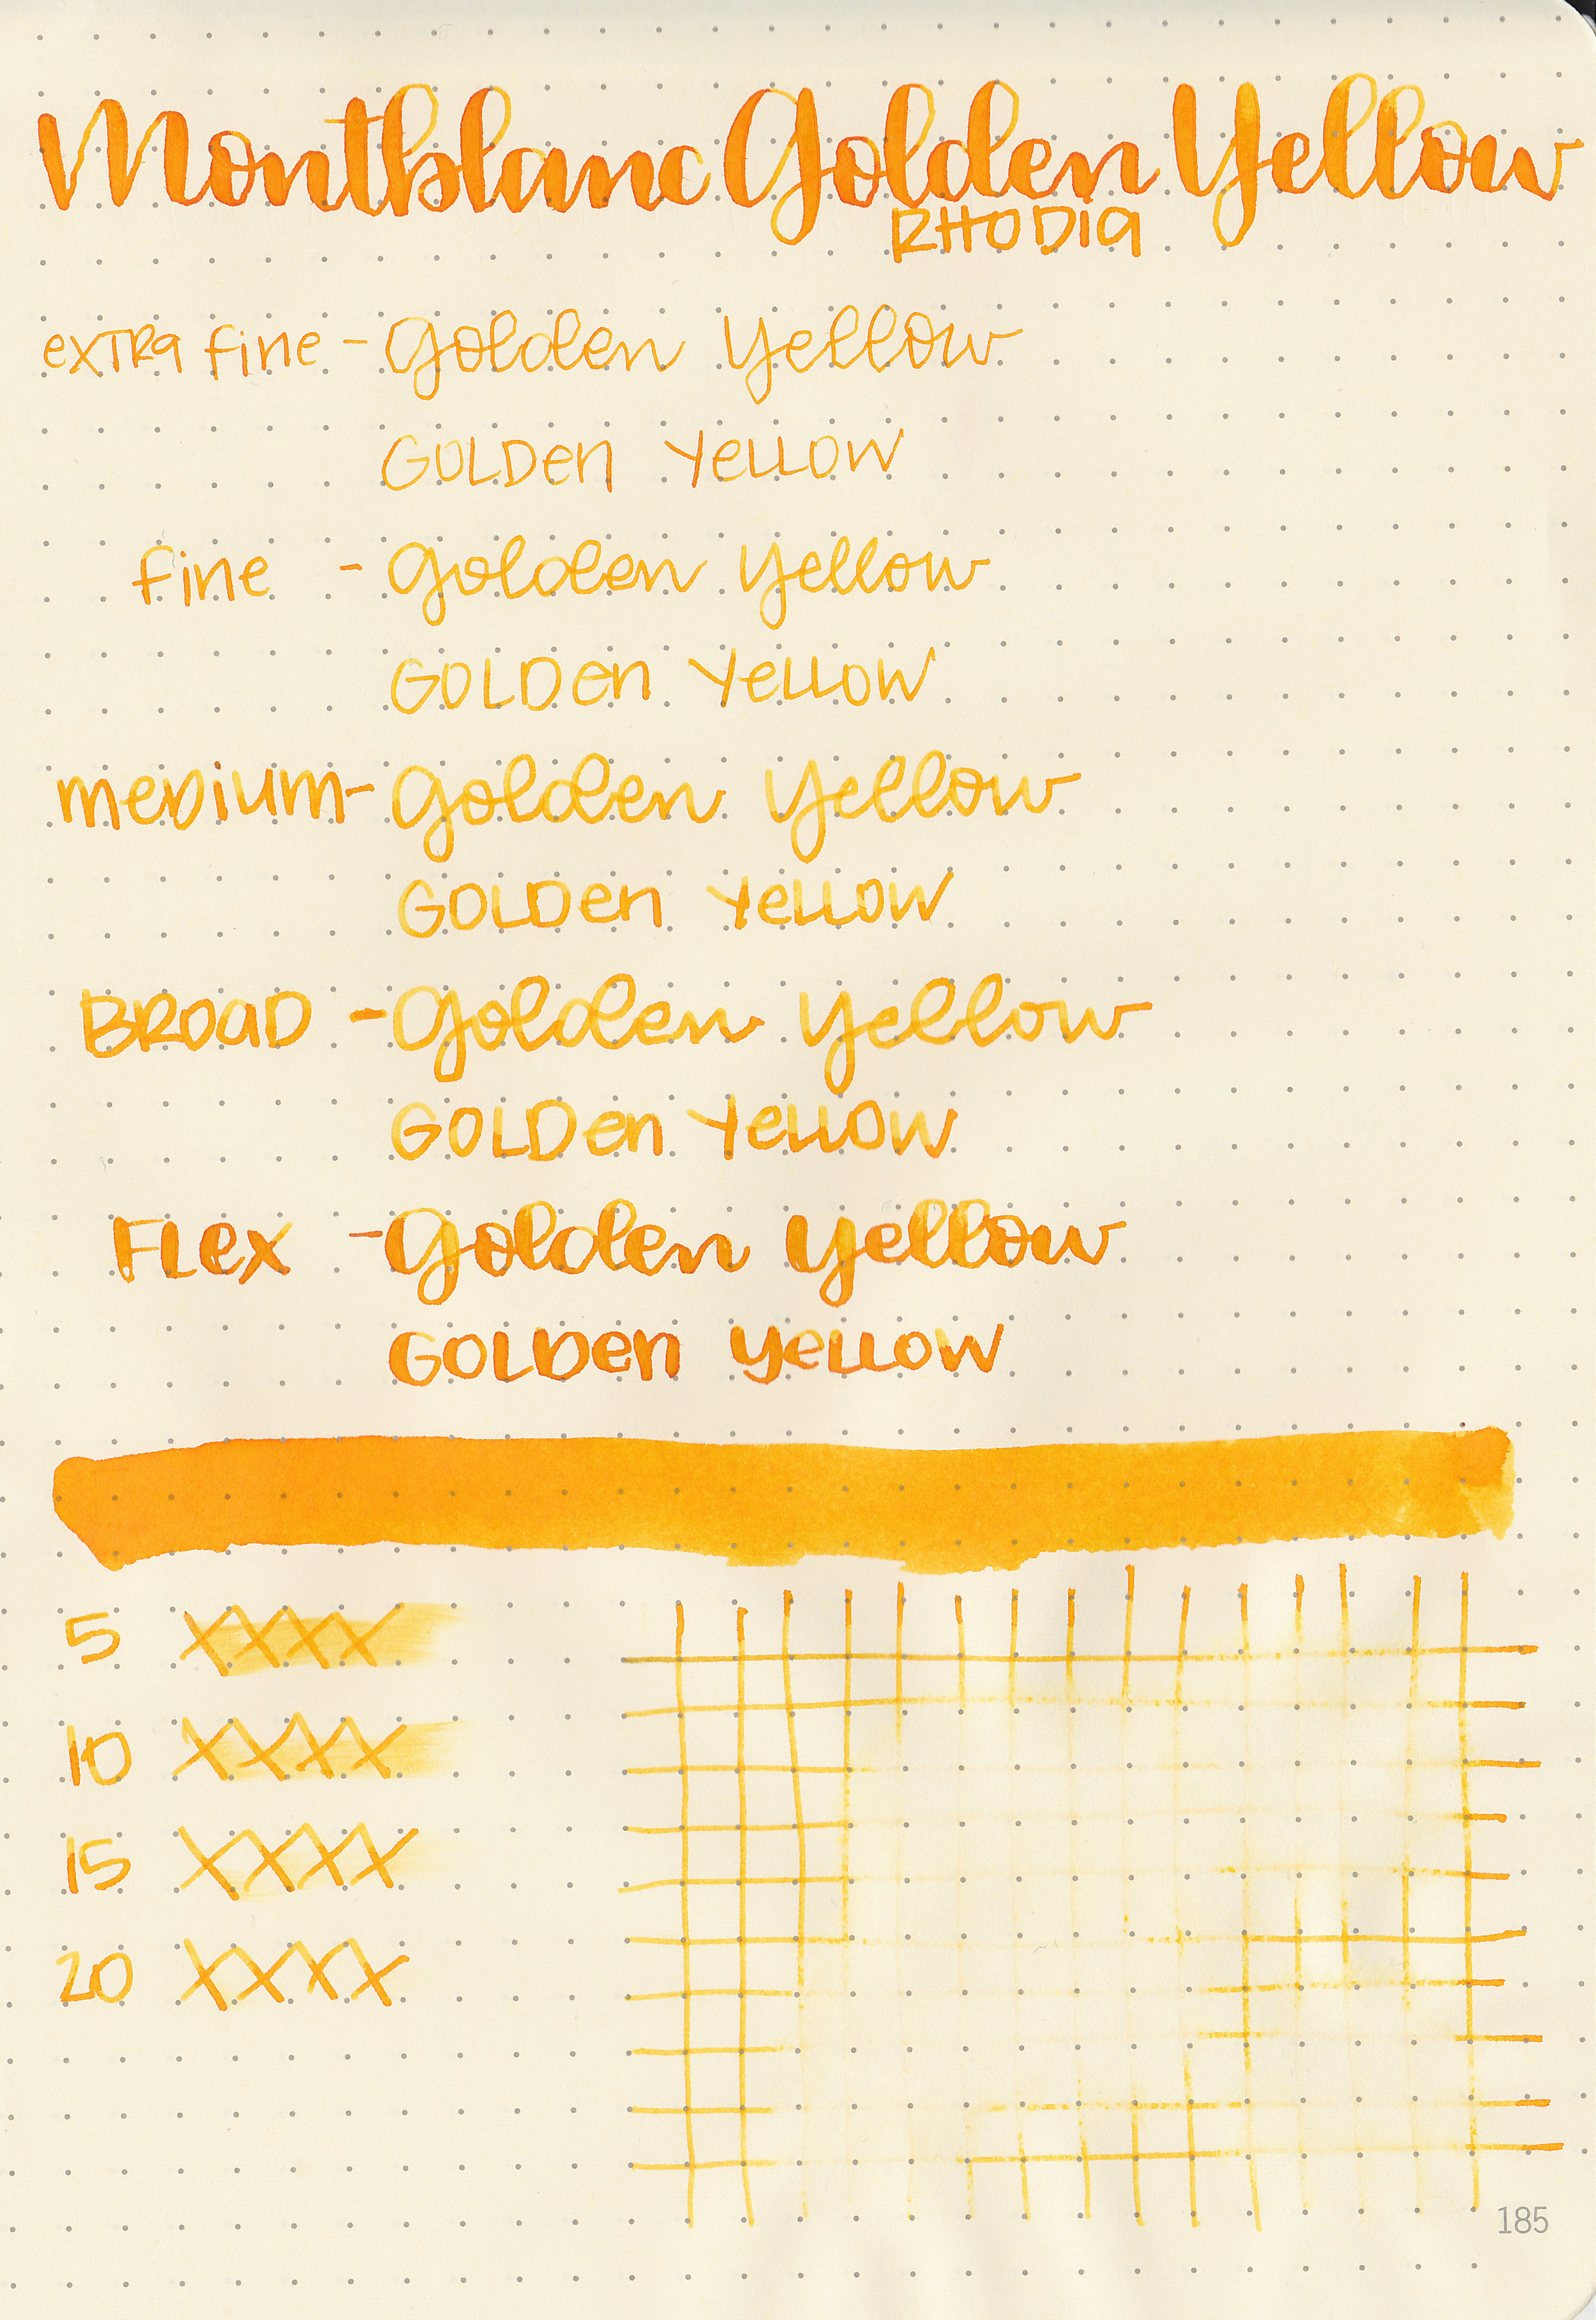 Montblanc Golden Yellow
RHODIA
extra fine - Golden Yellow
GOLDen Yellow
fine - Golden Yellow
GOLDen Yellow
medium - Golden Yellow
GOLDen Yellow
BROAD - Golden Yellow
GOLDen Yellow
FLex - Golden Yellow
GOLDen Yellow
5 XXXX
10 XXXX
15 XXXX
20 XXXX
185